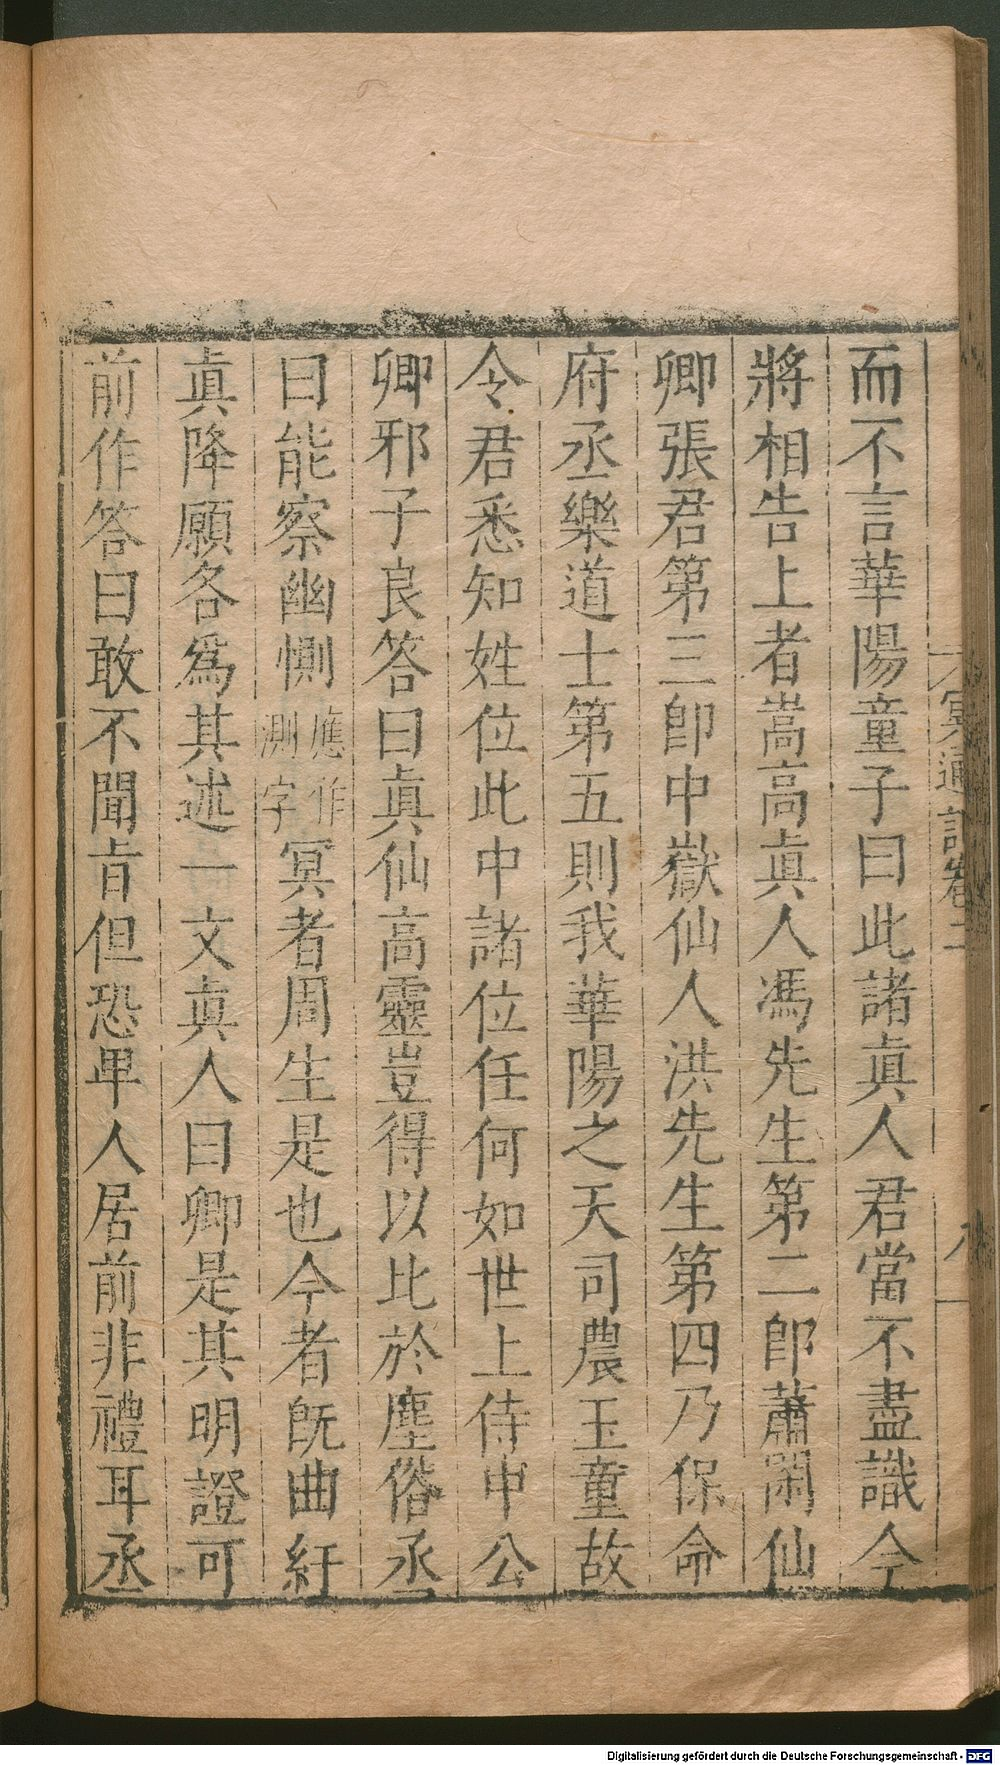 而不言華陽童子曰此諸眞人君當不盡識今
將相告上者嵩高眞人馮先生第二卽蕭閑仙
卿張君第三卽中嶽仙人洪先生第四乃保命
府丞樂道士第五則我華陽之天司農玉童故
令君悉知姓位此中諸位任何如世上侍中公
卿邪子良答曰眞仙高靈豈得以比於塵俗丞
曰能察幽惻應作測字冥者周生是也今者旣曲紆
眞降願各爲其述一文眞人曰卿是其明證可
前作答曰敢不聞旨但恐卑人居前非禮耳丞
冥通記卷二
八
Digitalisierung gefördert durch die Deutsche Forschungsgemeinschaft - DFG